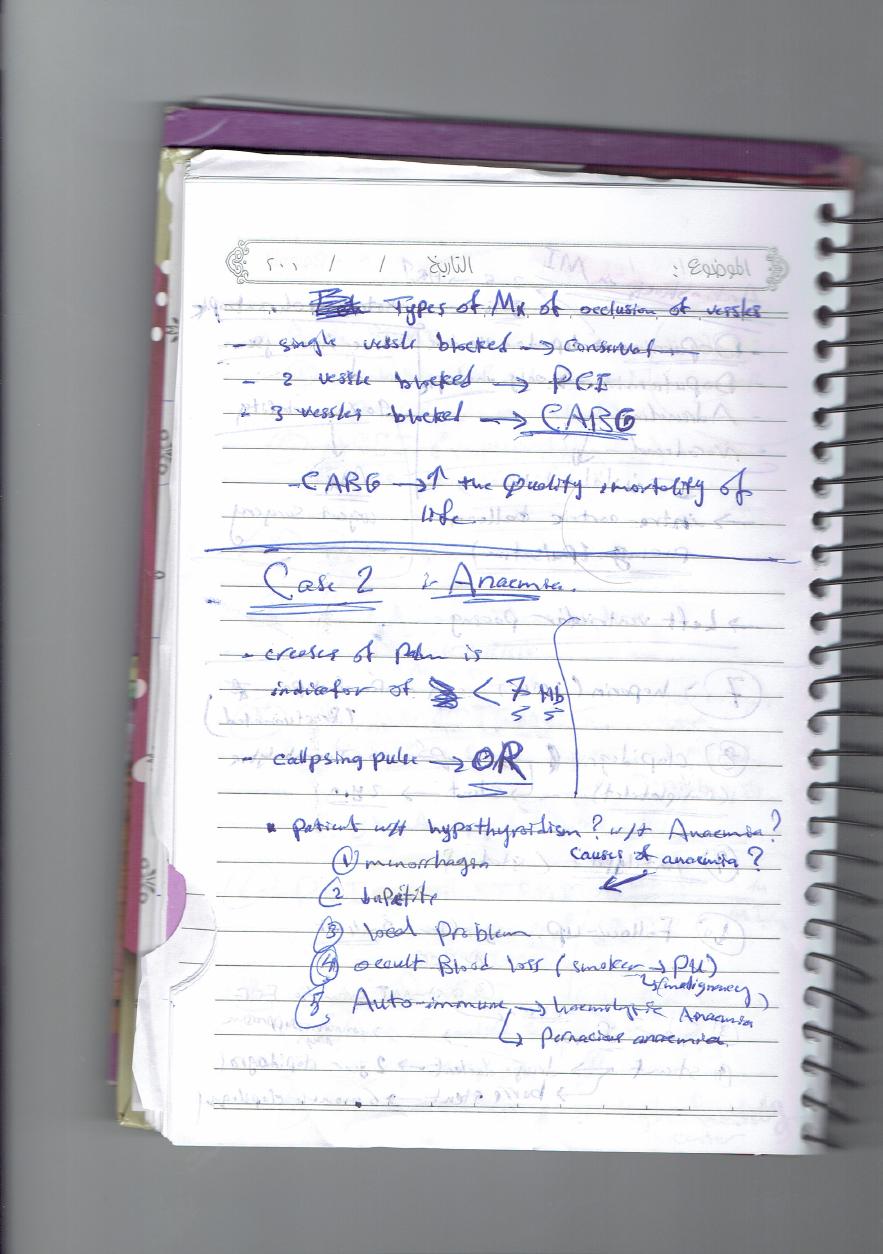 الموضوع: التاريخ / / ٢٠٠
Types of Mx of occlusion of vessles
- single vessle blocked → conservat
- 2 vessle blocked → PCI
- 3 vessles blocked → CABG
- CABG → ↑ the Quality mortality of
life
Case 2 Anaemia.
- creases of Palm is
indicator of < 7 Hb
- callpsing pulse → OR
patient w/t hypothyroidism? w/t Anaemia?
causes of anaemia?
① menorrhagea
②
③ local Problem
④ occult Blood loss (smoker → PU)
↳ (malignancy)
⑤ Auto-immune → haemolytic Anaemia
↳ pernacious anaemia.